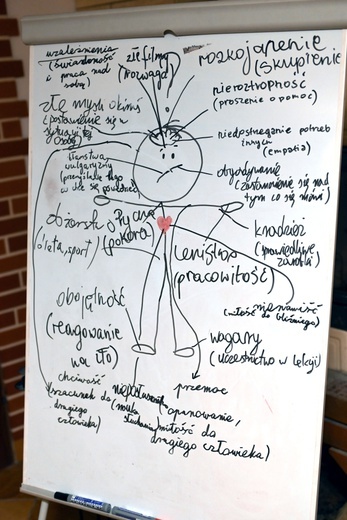 uzależnienia
(świadomość
i praca nad
sobą)
złe filmy
(rozwaga)
rozkojarzenie
(skupienie
nieroztropność
(proszenie o pomoc)
złe myśli o kimś
(postawienie się w
sytuacji
osoby)
niedostrzeganie potrzeb
innych
(empatia)
kłamstwa,
wulgaryzmy
(przemyślenie tego
w
co się
obgadywanie
(zastanowienie się nad
tym co się mówi)
obżarstwo
(dieta, sport)
pycha
(pokora)
kradzież
(sprawiedliwe
zarobki)
Lenistwo
(pracowitość)
nienawiść
(miłość do bliźniego)
obojętność
(reagowanie
na zło)
wagary
(uczestnictwo w lekcji)
chciwość
(szacunek do
drugiego
człowieka)
nieposłuszeństwo
(nauka
słuchania)
przemoc
(opanowanie,
miłość do
drugiego człowieka)